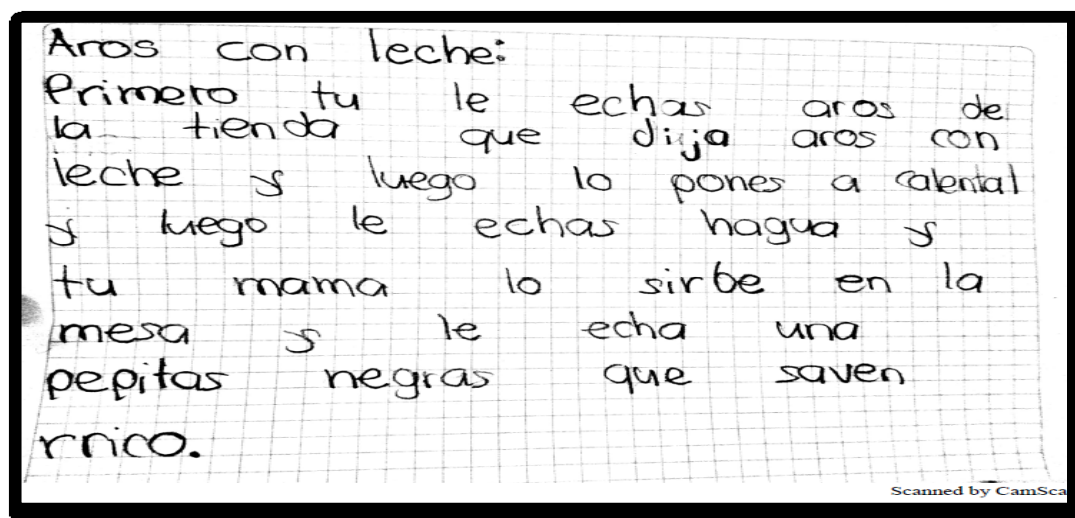 Aros con leche:
Primero tu le echas aros de
la tienda que dija aros con
leche y luego lo pones a calental
y luego le echas hagua y
tu mama lo sirbe en la
mesa y le echa una
pepitas negras que saven
rrico.
Scanned by CamSca